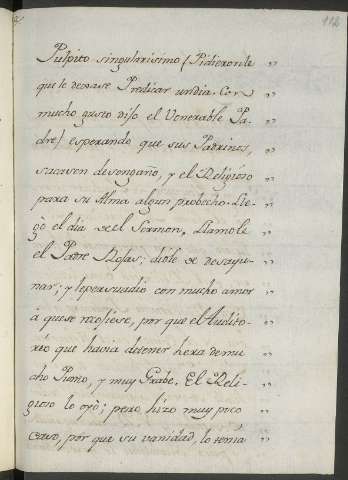 112
Pulpito singularissimo (Pidieronle „
que le dexase Predicar un dia. Con „
mucho gusto dijo el Venerable Pa- „
dre) esperando que sus Patrines, „
sacasen desengaño, y el Religioso „
para su Alma algun probecho. Lle- „
gò el dia del Sermon. Llamole „
el Padre Rosas; diole de desayu- „
nar; y le persuadio con mucho amor „
á que se recojiese, por que el Audito- „
rio que havia de tener hera de mu- „
cho Punto, y muy Grabe. El Reli- „
gioso lo oyò; pero hizo muy poco „
caso, por que su vanidad, lo tenia „